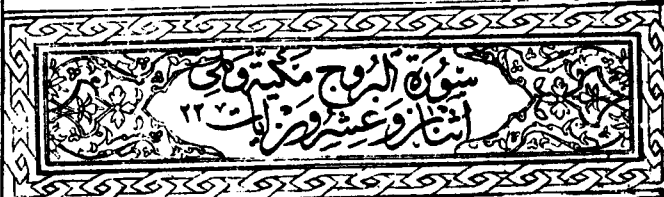 سُورَةُ البُرُوجِ مَكِّيَّةٌ وَهِيَ
اثْنَتَانِ وَعِشْرُونَ آيَات ٢٢